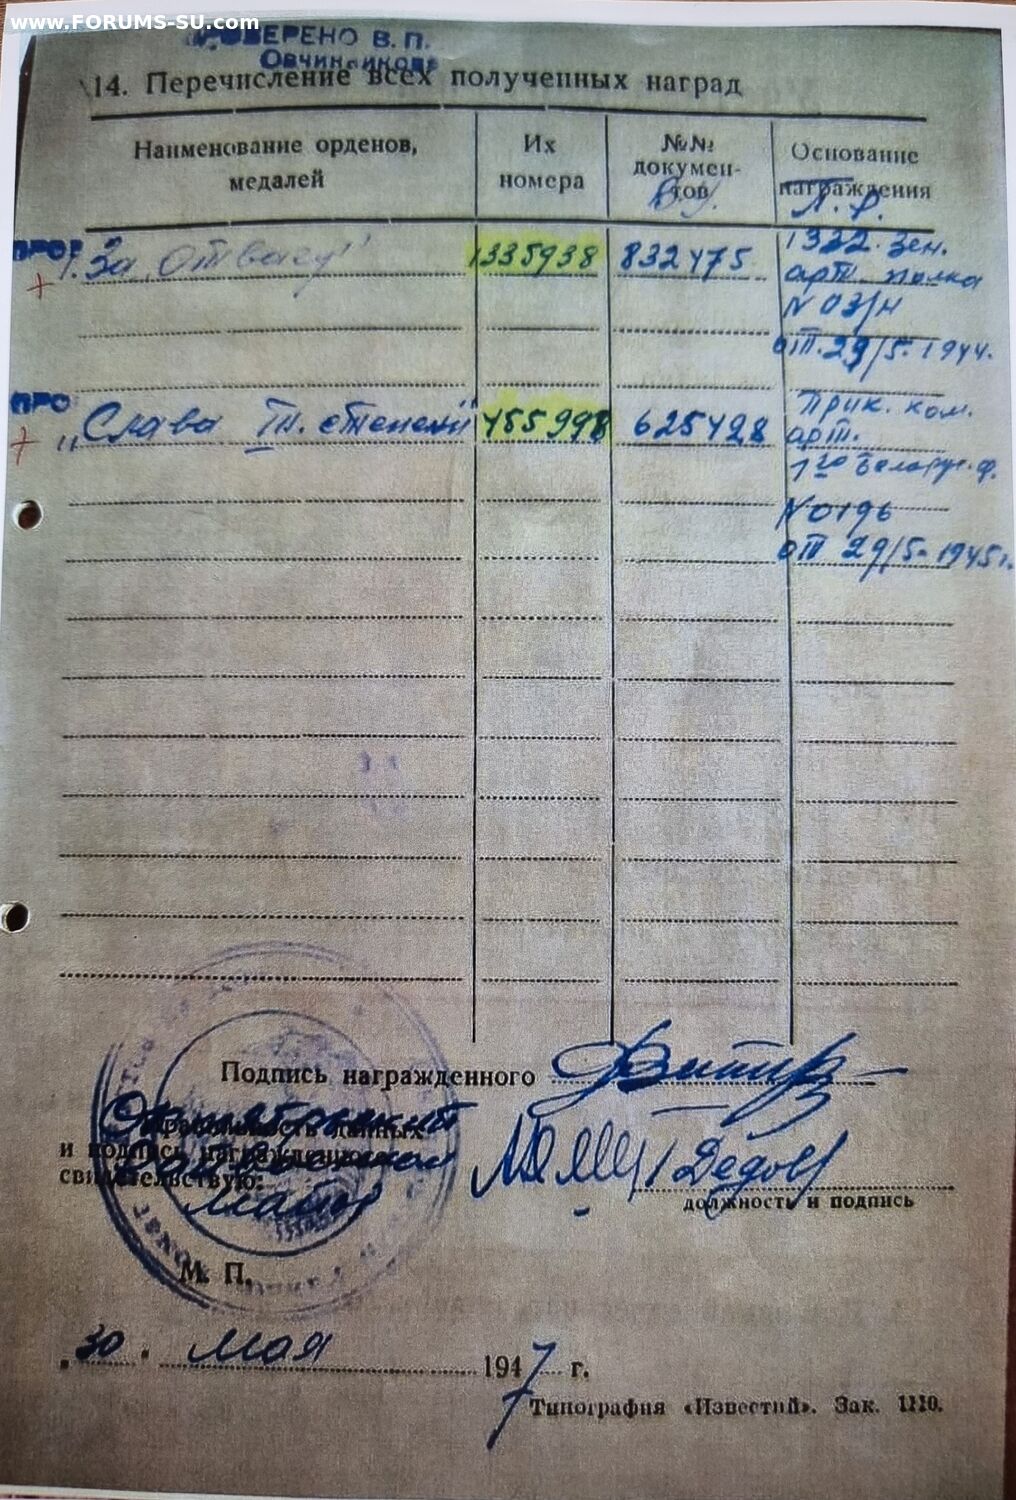 www.FORUMS-SU.com
ПРОВЕРЕНО В.П.
Овчинникова
14. Перечисление всех полученных наград
Наименование орденов, медалей
Их номера
№№ документов
Основание награждения
В/у.
Л. Р.
1. За отвагу"
1335938
832475
1322. Зен.
арт. полка
N 03/Н
от. 29/5. 1944.
ПРО
"Слава III. степени"
455998
625428
Прик. ком.
арт.
1го Беларус. ф.
N 0196
от 29/5-1945г.
Подпись награжденного
Правильность данных
и подпись награжденного
свидетельствую:
Октябрьский
Райвоенком
майор
/Дедов/
должность и подпись
М. П.
"30" мая 1947 г.
Типография «Известий». Зак. 1110.